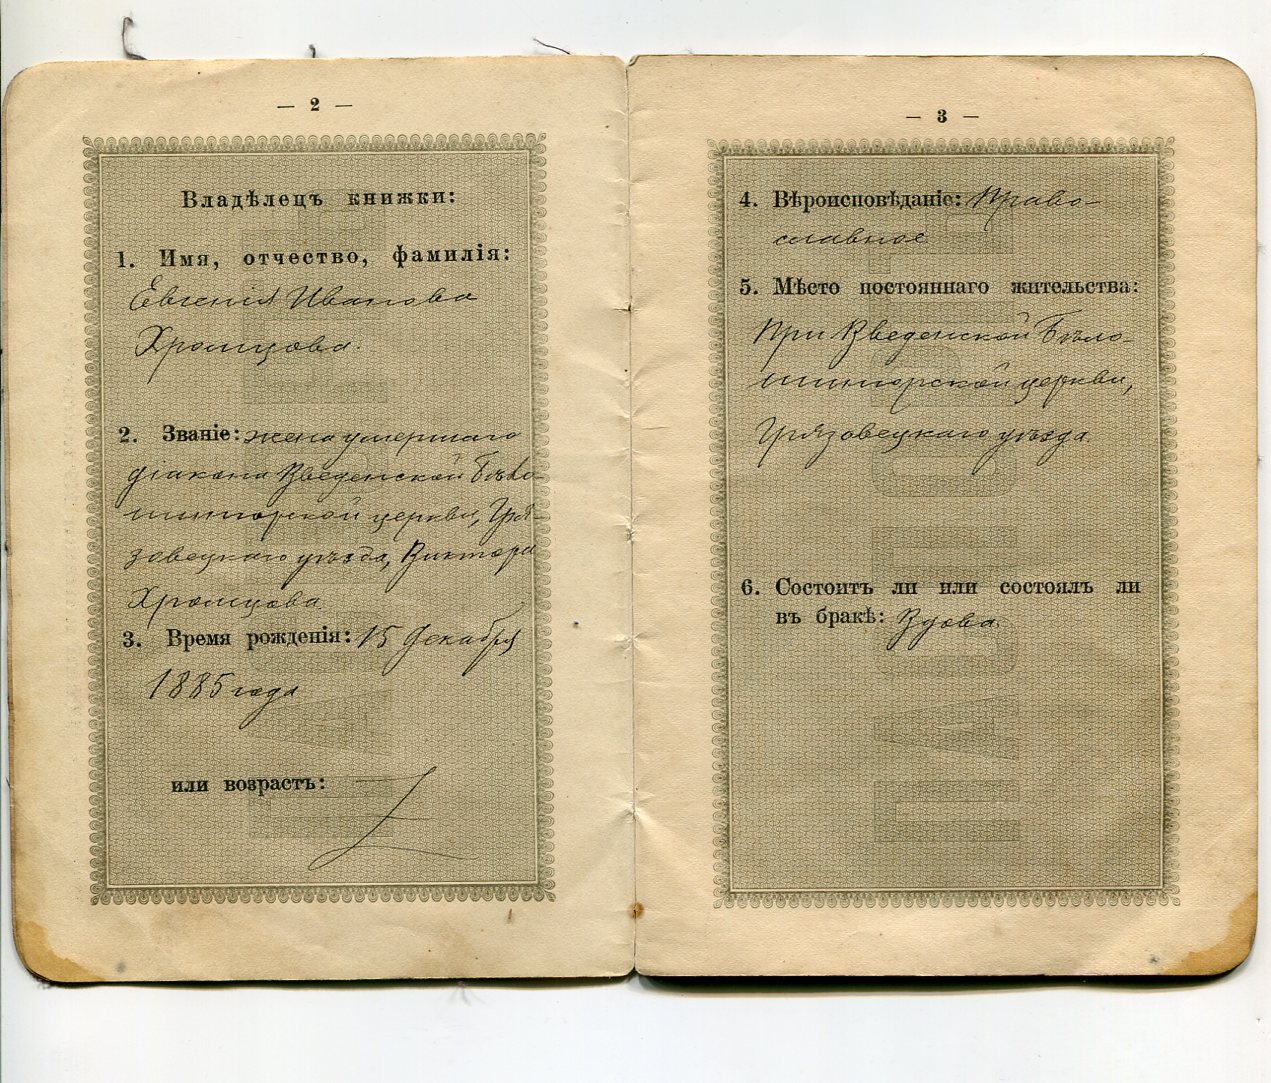 — 2 —
Владѣлецъ книжки:
1. Имя, отчество, фамилія:
Евгенія Иванова
Хромцова.
2. Званіе: жена умершаго
діакона Введенской Бѣло-
шингорской церкви, Гря-
зовецкаго уѣзда, Виктора
Хромцова
3. Время рожденія: 15 декабря
1885 года
или возрастъ:
— 3 —
4. Вѣроисповѣданіе: Право-
славное
5. Мѣсто постояннаго жительства:
При Введенской Бѣло-
шингорской церкви,
Грязовецкаго уѣзда
6. Состоитъ ли или состоялъ ли
въ бракѣ: Вдова.